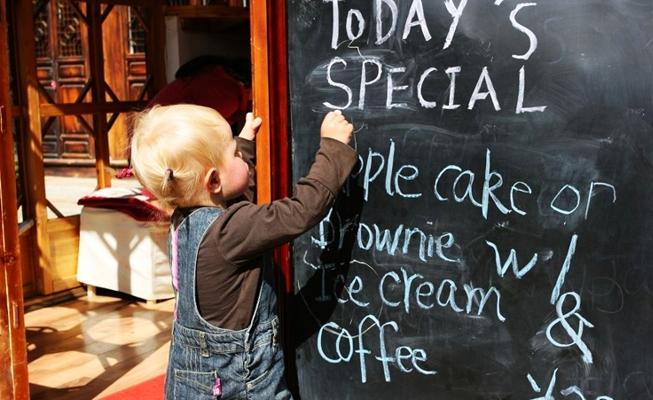 ToDAY'S
SPECIAL
Apple cake or
brownie w/
Ice cream &
coffee